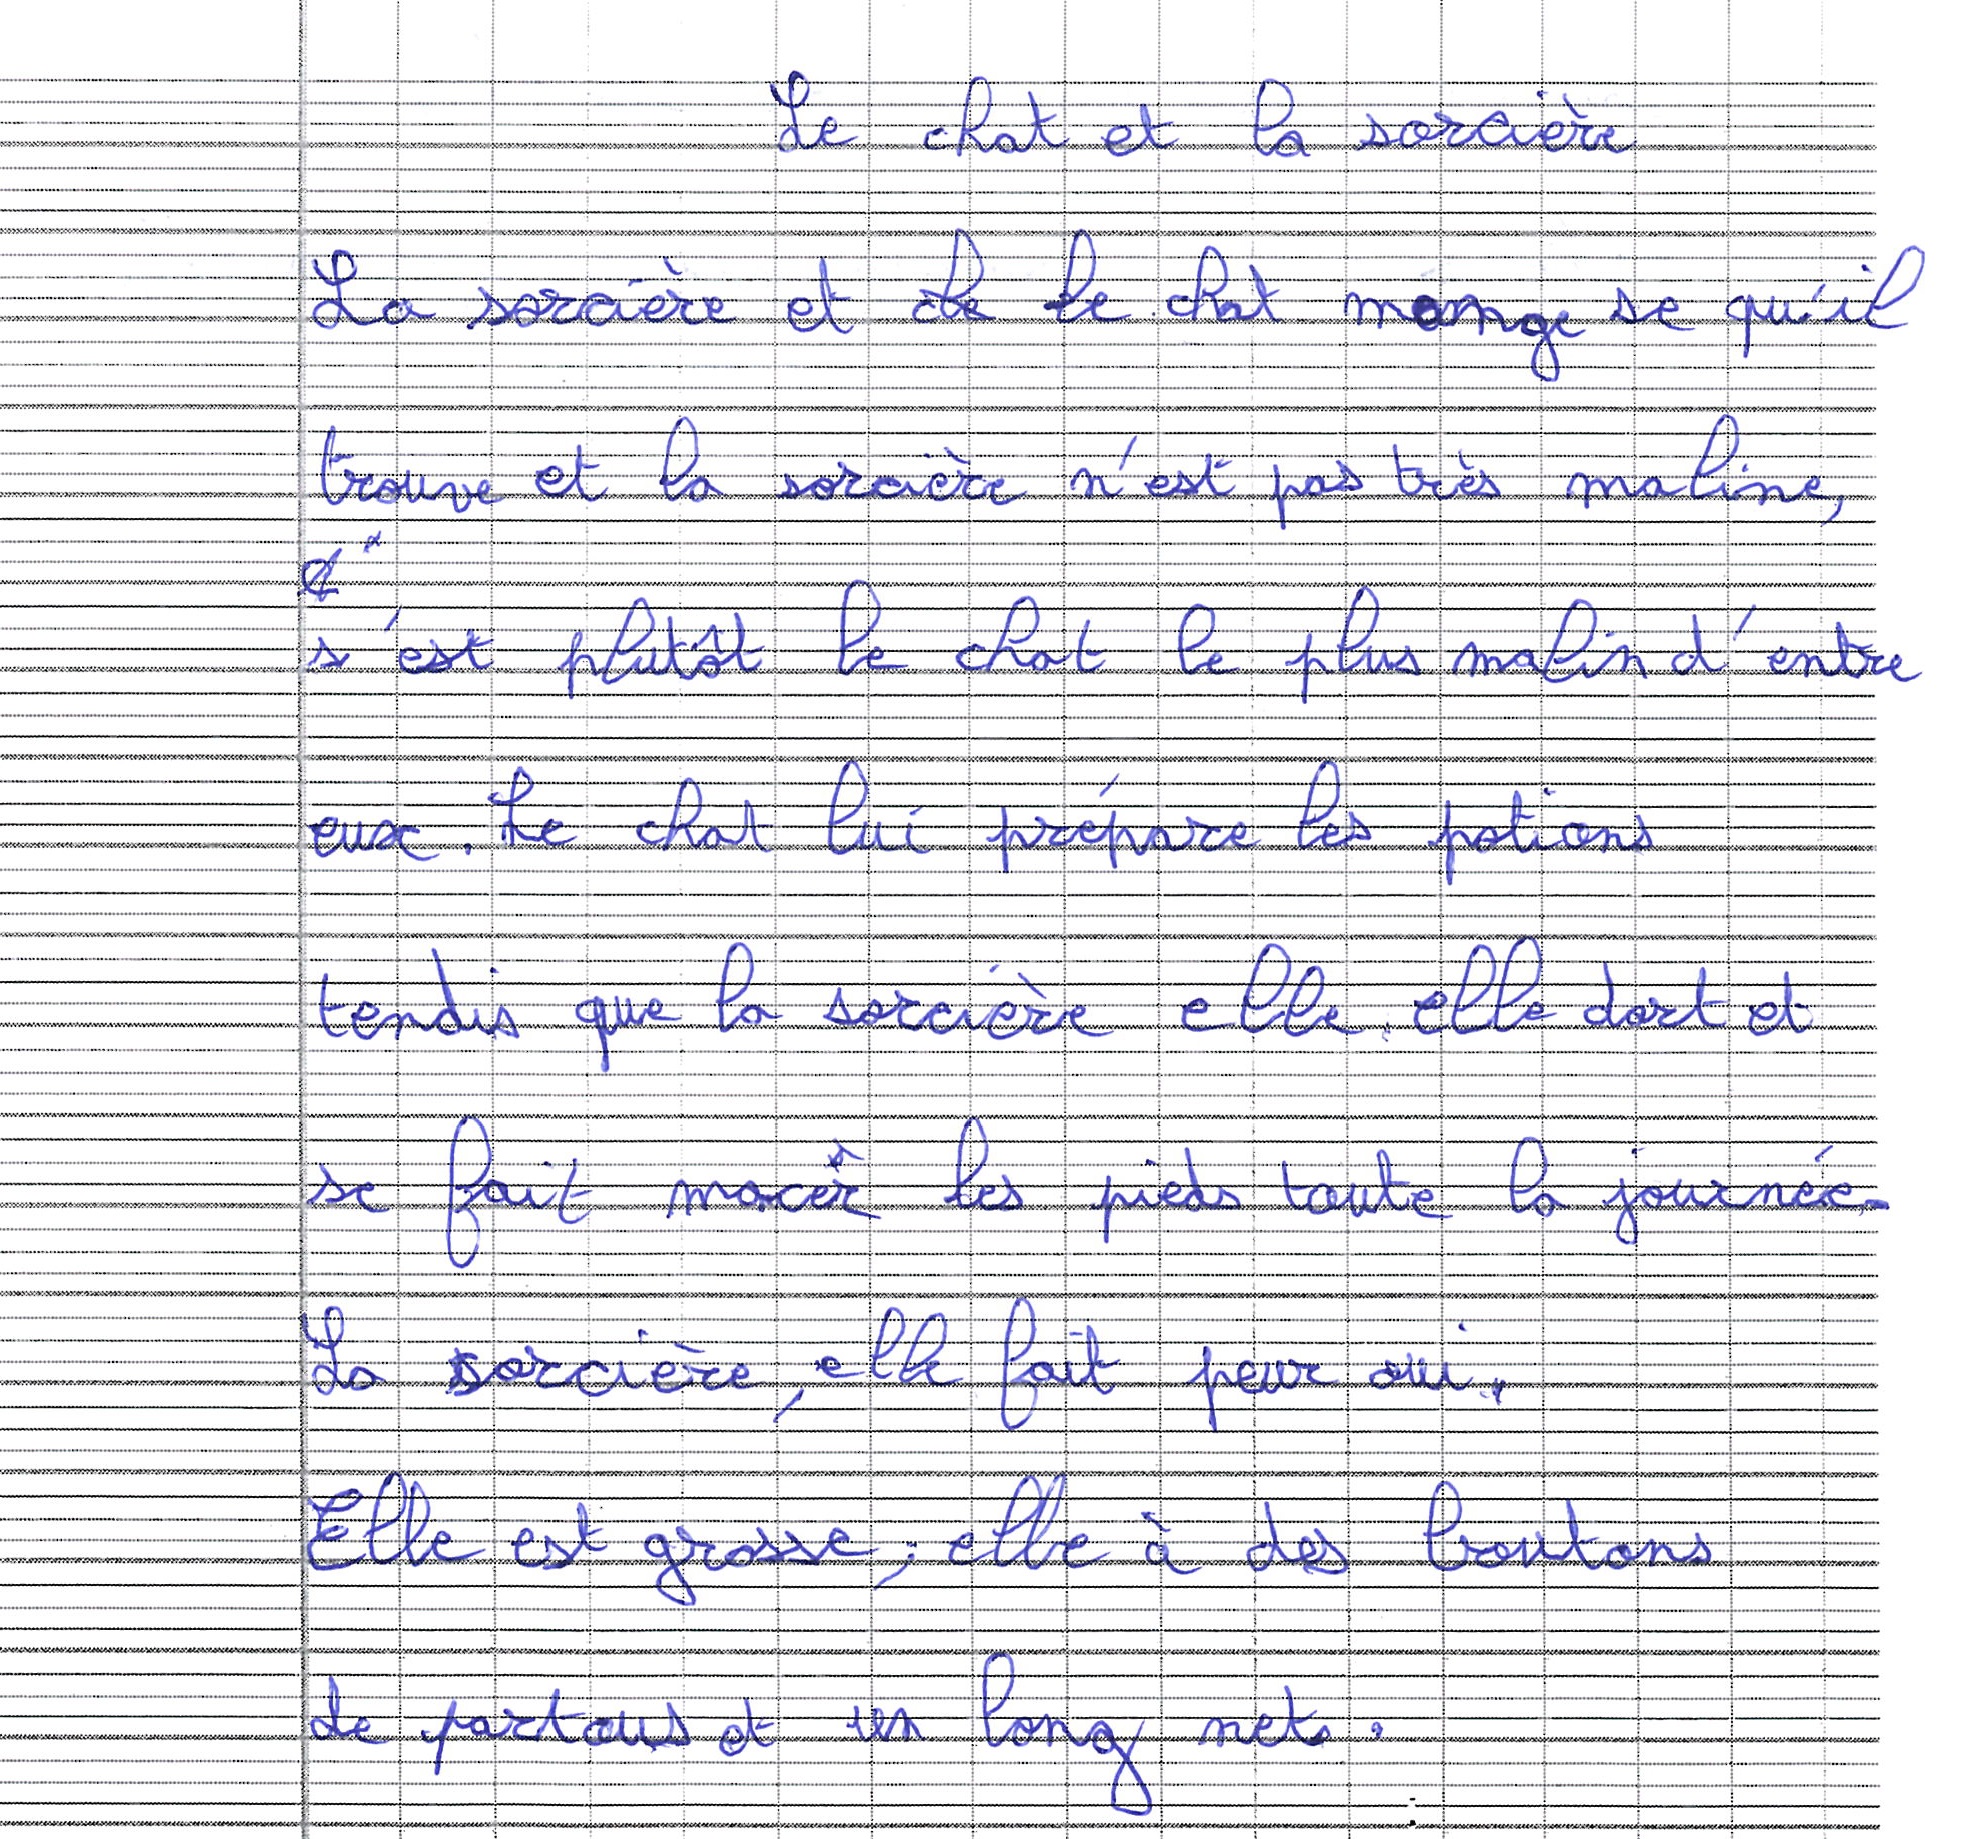 Le chat et la sorcière
La sorcière et che le chat mange se qu'il
trouve et la sorcière n'est pas très maline,
s'est plutôt le chat le plus malin d'entre
eux. Le chat lui prépare les potions
tendis que la sorcière elle, elle dort et
se fait macèr les pieds toute la journée.
La sorcière, elle fait peur oui.
Elle est grosse, elle à des boutons
de partous et un long nets.